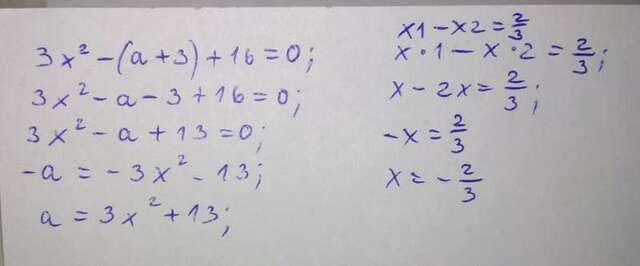 3x² - (a + 3) + 16 = 0;
3x² - a - 3 + 16 = 0;
3x² - a + 13 = 0;
-a = -3x² - 13;
a = 3x² + 13;
x1 - x2 = 2/3
x · 1 - x · 2 = 2/3;
x - 2x = 2/3;
-x = 2/3
x = - 2/3